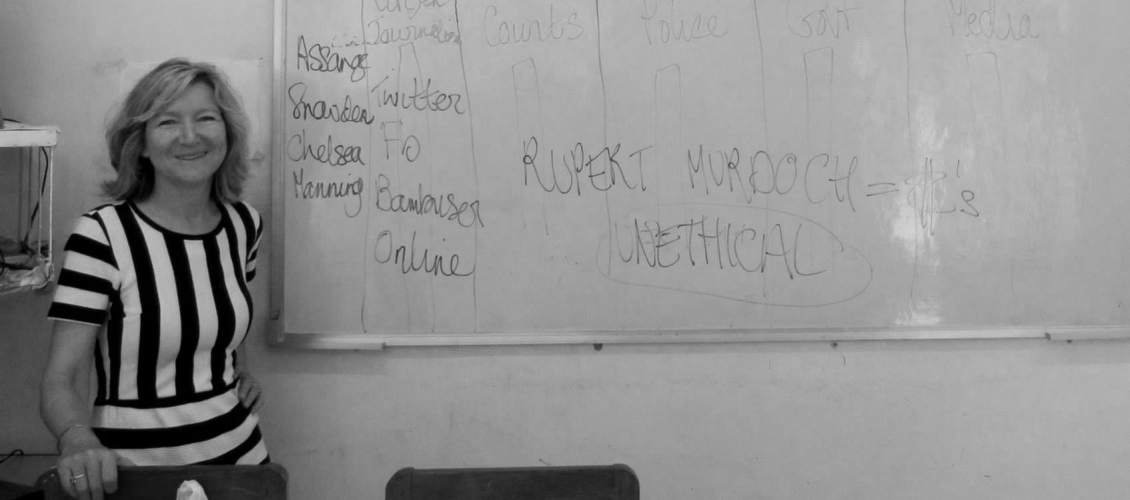 Journalist Courts Police Govt Media
Assange
Snowden Twitter
Chelsea
Manning
Bambuser
Online
RUPERT MURDOCH =
UNETHICAL